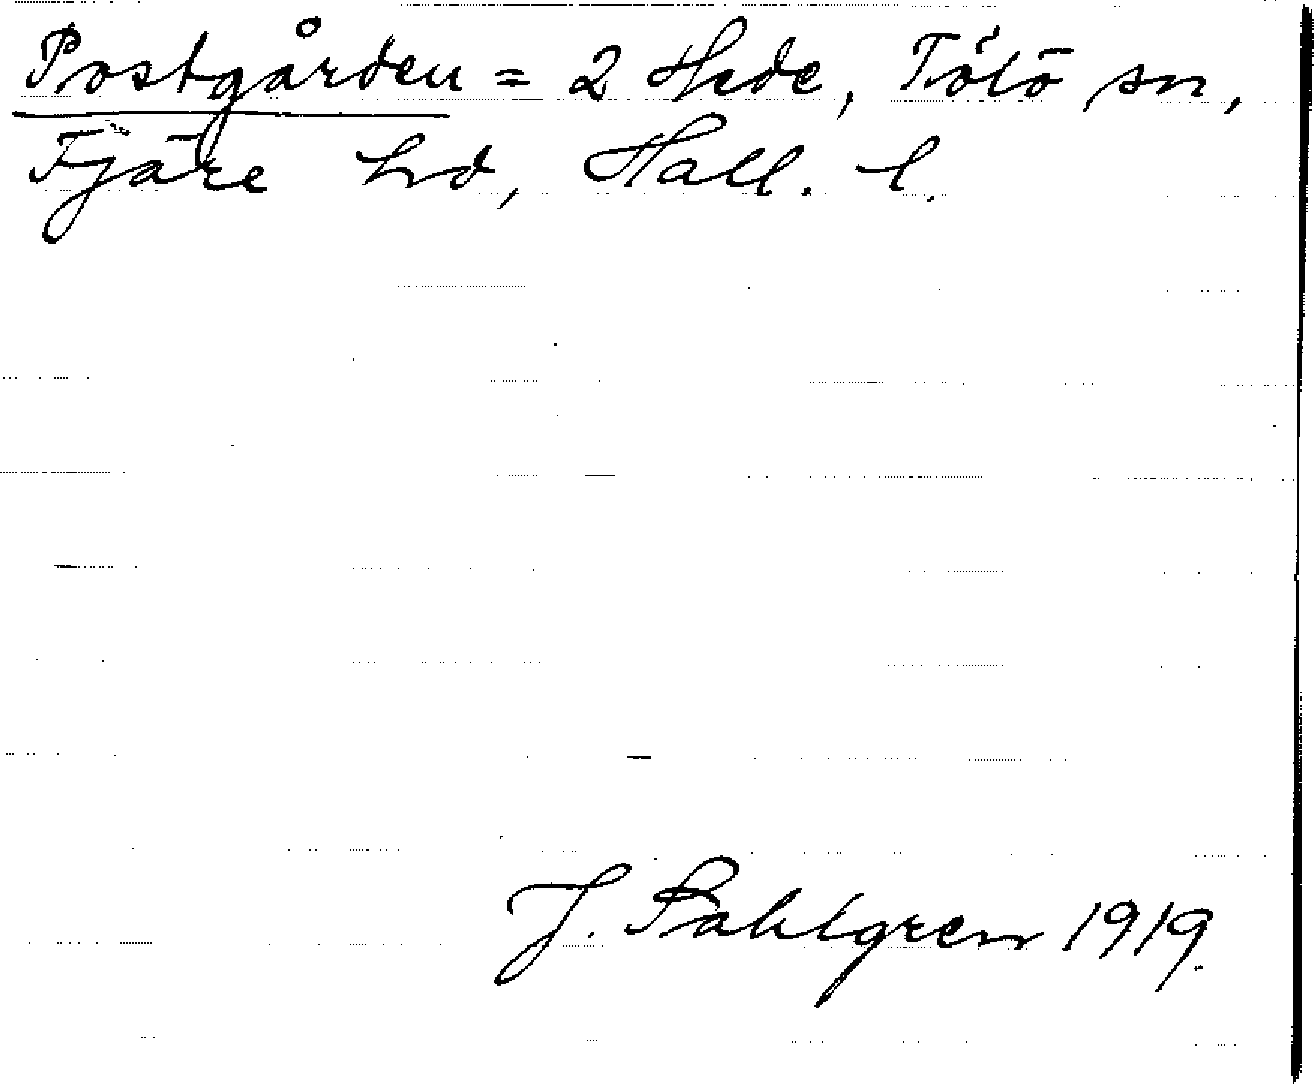 Postgården = 2 Hede, Tölö sn,
Fjäre hd, Hall. l.
J. Sahlgren 1919.